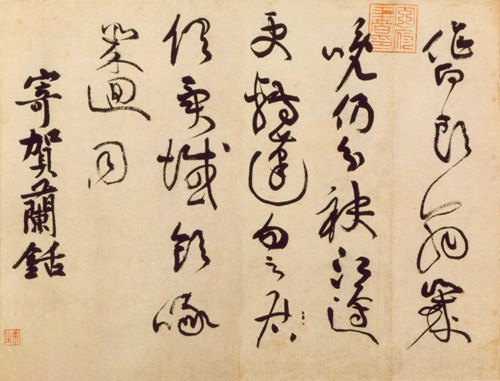 作白頭翁歲
晚仍分袂江邊
更轉蓬勿云
俱異域飲啄
幾迴同
寄賀蘭銛